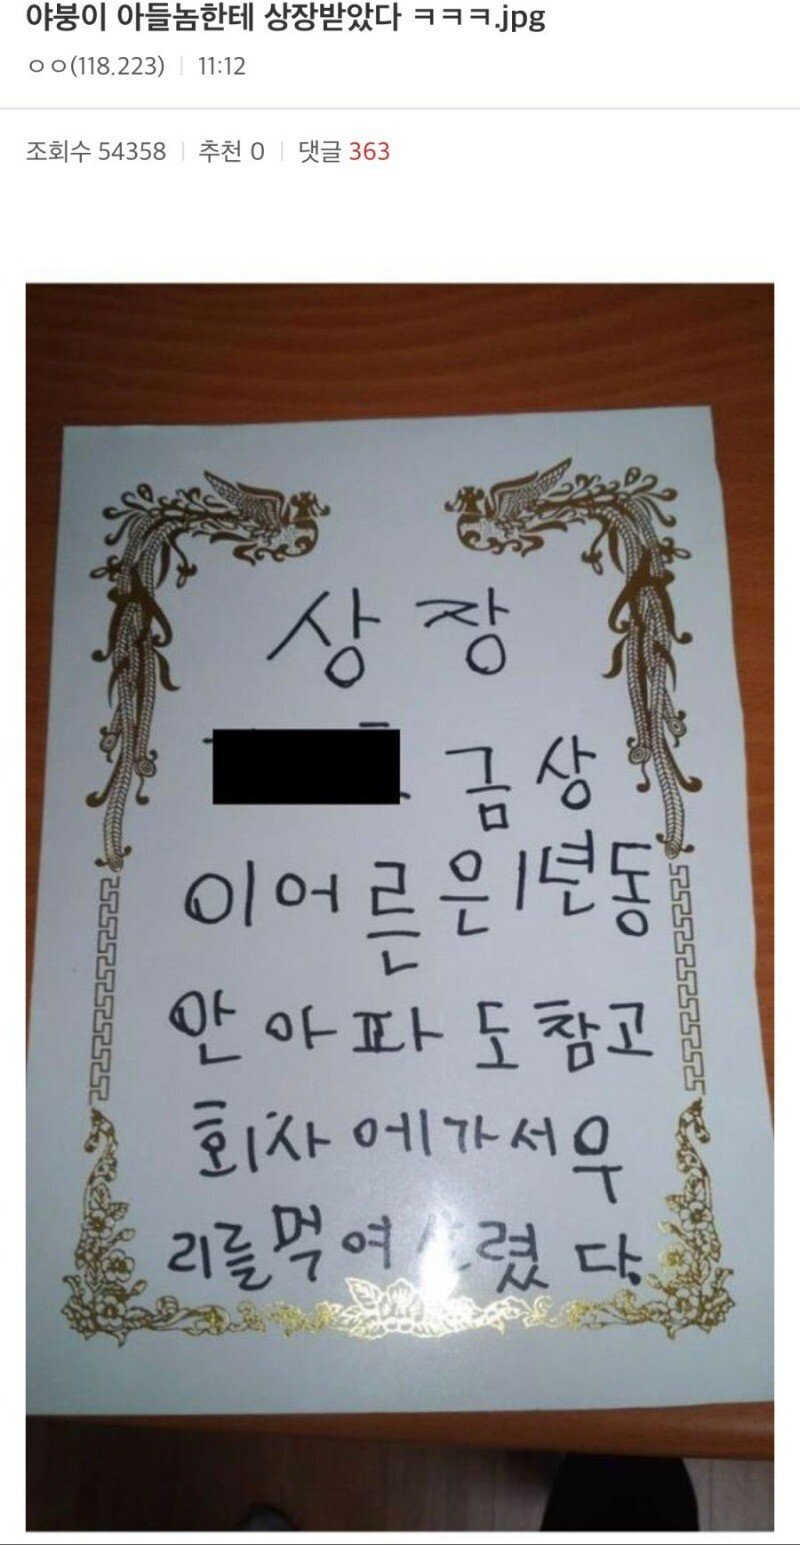 야붕이 아들놈한테 상장받았다 ㅋㅋㅋ.jpg
ㅇㅇ(118.223) 11:12
조회수 54358 추천 0 댓글 363
상장
금상
이어른은1년동
안아파도참고
회사에가서우
리를먹여렸다.